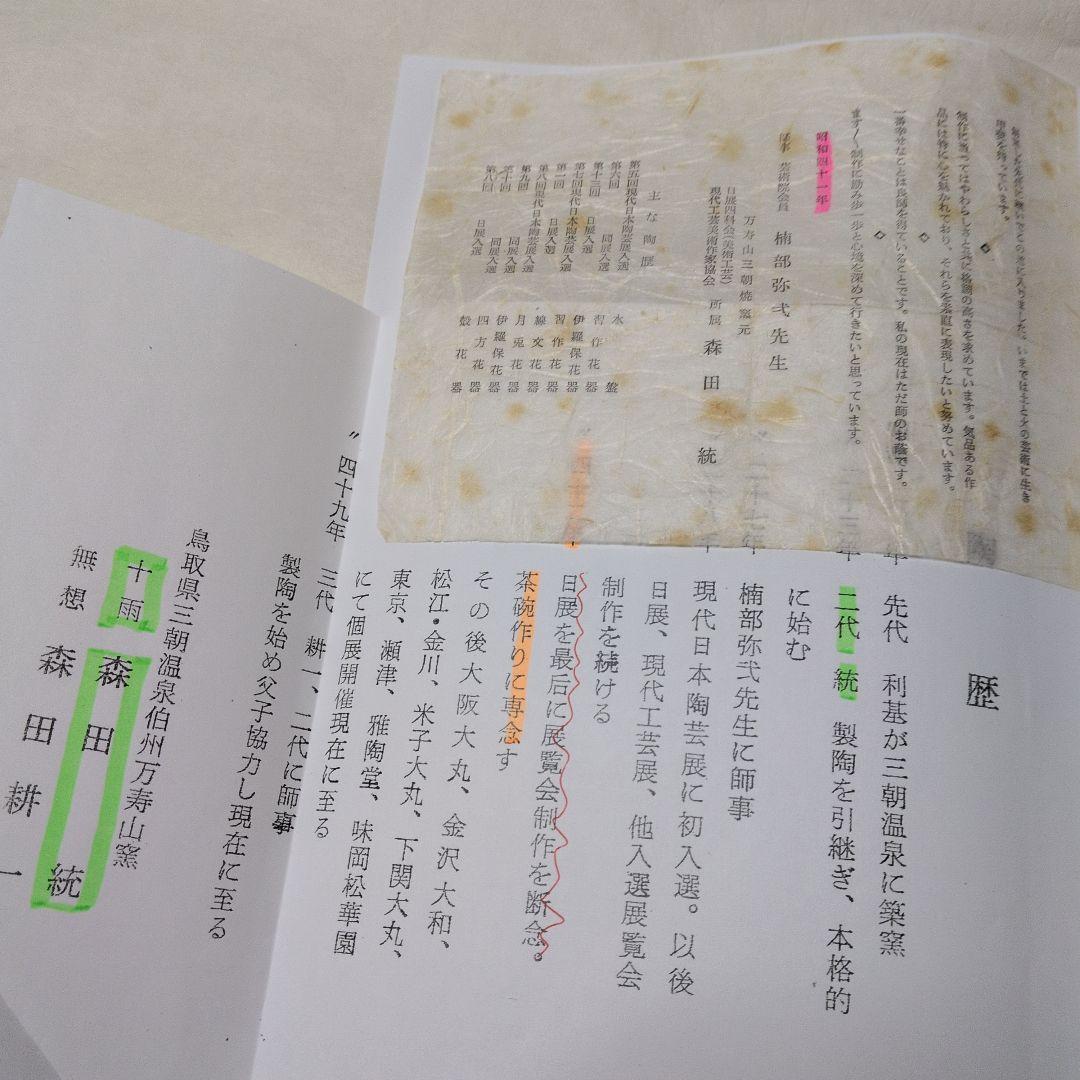 制作に当ってはやわらしさと共に格調の高さを求めています。気品ある作
品には特に心を魅かれており、それらを素直に表現したいと努めています。
一番幸せなことは良師を得ていることです。私の現在はただ師のお蔭です。
ます〳〵制作に励み歩一歩と心境を深めて行きたいと思っています。
昭和四十一年
師事 芸術院会員 楠部弥弌先生
万寿山三朝焼窯元
日展四科会(美術工芸)
現代工芸美術作家協会 所属 森田 統
主な陶歴
第五回現代日本陶芸展入選 水盤
第六回 同展入選 習作花器
第十三回 日展入選 伊羅保花器
第七回現代日本陶芸展入選 習作花器
第一回 日展入選 線文花器
第八回現代日本陶芸展入選 月兎花器
第九回 同展入選 伊羅保花器
第十回 同展入選 四方花器
第八回 日展入選 殻花器
歴
年 先代 利基が三朝温泉に築窯
二代 統 製陶を引継ぎ、本格的
に始む
年 楠部弥弌先生に師事
年 現代日本陶芸展に初入選。以後
日展、現代工芸展、他入選展覧会
制作を続ける
日展を最后に展覧会制作を断念。
茶碗作りに専念す
その後大阪大丸、金沢大和、
松江・金川、米子大丸、下関大丸、
東京、瀬津、雅陶堂、味岡松華園
にて個展開催現在に至る
〃四十九年 三代 耕一、二代に師事
製陶を始め父子協力し現在に至る
鳥取県三朝温泉伯州万寿山窯
十雨 森田 統
無想 森田耕一